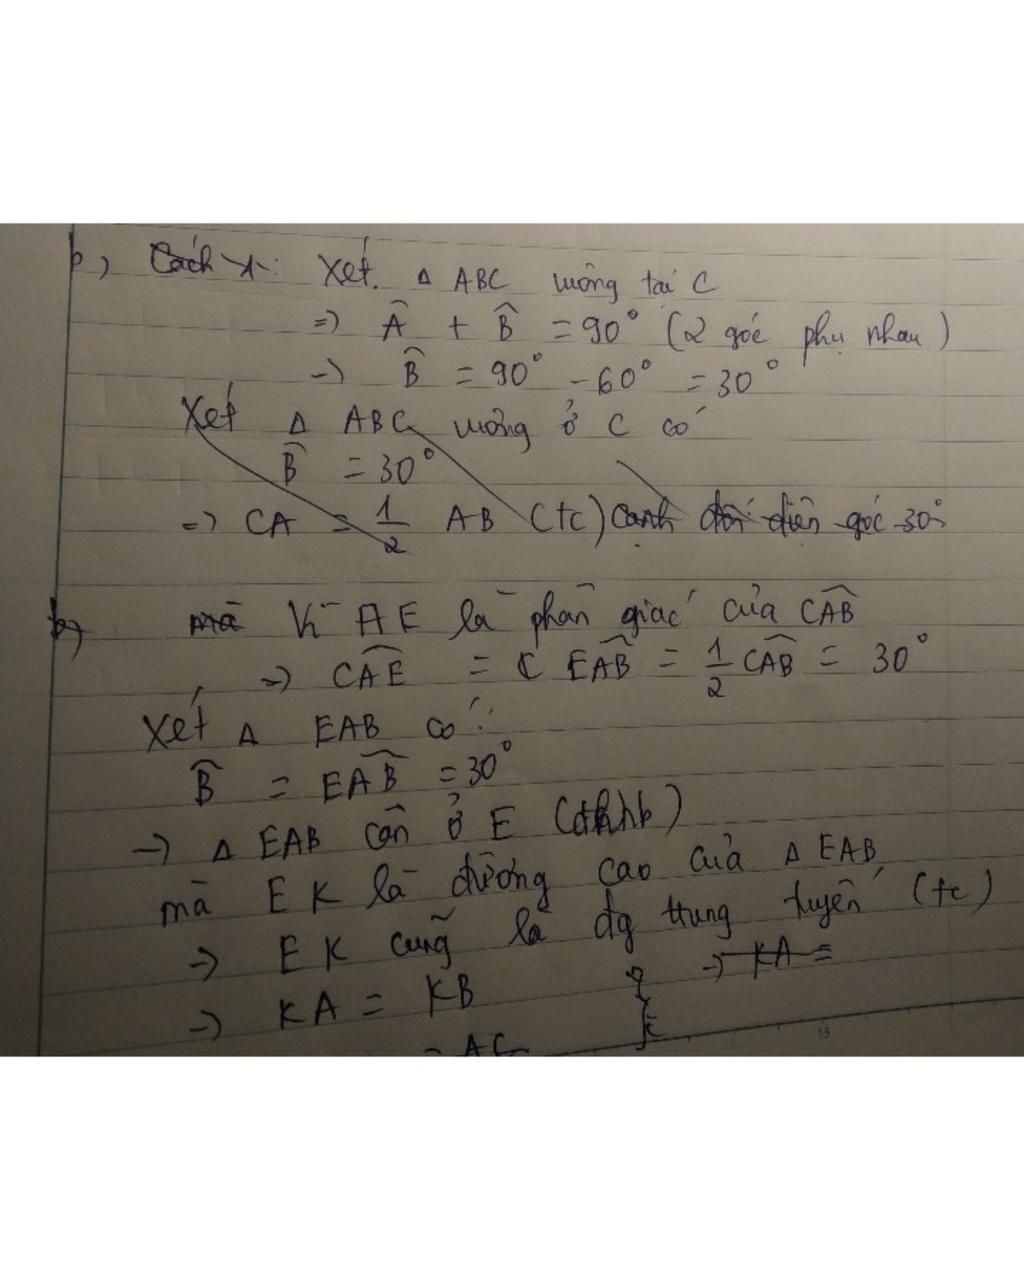 b) Cách 1: Xét Δ ABC vuông tại C
=> Â + B̂ = 90° (2 góc phụ nhau)
-> B̂ = 90° - 60° = 30°
Xét Δ ABC vuông ở C có
B̂ = 30°
=> CA = 1/2 AB (tc) cạnh đối diện góc 30°
b) mà Vì AE là phân giác của CAB̂
=> CAÊ = EAB̂ = 1/2 CAB̂ = 30°
Xét Δ EAB có:
B̂ = EAB̂ = 30°
-> Δ EAB cân ở E (dhnb)
mà EK là đường cao của Δ EAB
=> EK cũng là đg trung tuyến (tc)
-> KA =
=> KA = KB
= AC
15